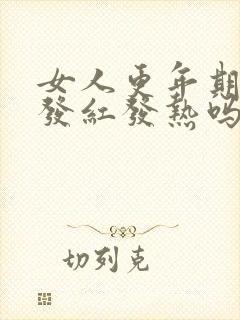 女人更年期
發紅發熱嗎
切列克